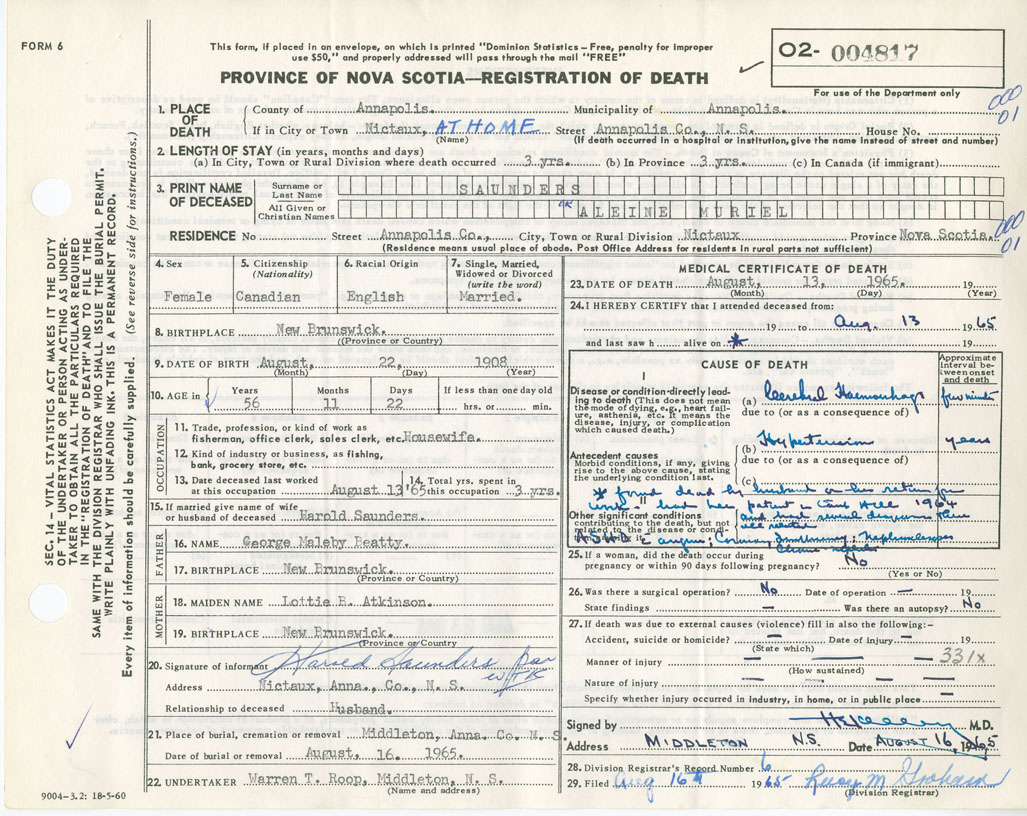 FORM 6
This form, if placed in an envelope, on which is printed "Dominion Statistics – Free, penalty for improper
use $50," and properly addressed will pass through the mail "FREE"
PROVINCE OF NOVA SCOTIA—REGISTRATION OF DEATH
O2- 004817
For use of the Department only
000
01
1. PLACE OF DEATH
County of Annapolis. Municipality of Annapolis.
If in City or Town Nictaux, AT HOME Street Annapolis Co., N. S. House No.
(Name) (If death occurred in a hospital or institution, give the name instead of street and number)
2. LENGTH OF STAY (in years, months and days)
(a) In City, Town or Rural Division where death occurred 3 yrs. (b) In Province 3 yrs. (c) In Canada (if immigrant)
3. PRINT NAME OF DECEASED
Surname or Last Name SAUNDERS
All Given or Christian Names OK ALEINE MURIEL
RESIDENCE No Street Annapolis Co., City, Town or Rural Division Nictaux Province Nova Scotia.
000
01
(Residence means usual place of abode. Post Office Address for residents in rural parts not sufficient)
4. Sex
Female
5. Citizenship
(Nationality)
Canadian
6. Racial Origin
English
7. Single, Married,
Widowed or Divorced
(write the word)
Married.
8. BIRTHPLACE New Brunswick.
(Province or Country)
9. DATE OF BIRTH August, 22, 1908
(Month) (Day) (Year)
10. AGE in
Years Months Days If less than one day old
56 11 22 hrs. or min.
OCCUPATION
11. Trade, profession, or kind of work as
fisherman, office clerk, sales clerk, etc. Housewife.
12. Kind of industry or business, as fishing,
bank, grocery store, etc.
13. Date deceased last worked
at this occupation August 13 '65
14. Total yrs. spent in
this occupation 3 yrs.
15. If married give name of wife
or husband of deceased Harold Saunders.
FATHER
16. NAME George Maleby Beatty.
17. BIRTHPLACE New Brunswick.
(Province or Country)
MOTHER
18. MAIDEN NAME Lottie B. Atkinson.
19. BIRTHPLACE New Brunswick.
(Province or Country
20. Signature of informant Harold Saunders per
Address Nictaux, Anna., Co., N. S.
Relationship to deceased Husband.
21. Place of burial, cremation or removal Middleton, Anna. Co. N. S.
Date of burial or removal August, 16. 1965.
22. UNDERTAKER Warren T. Roop, Middleton, N. S.
(Name and address)
9004–3.2: 18-5-60
MEDICAL CERTIFICATE OF DEATH
23. DATE OF DEATH August, 13, 1965. 19
(Month) (Day) (Year)
24. I HEREBY CERTIFY that I attended deceased from:
19 to Aug. 13 1965
and last saw h alive on *
CAUSE OF DEATH
Approximate
interval between
onset
and death
I
Disease or condition directly leading
to death (This does not mean
the mode of dying, e.g., heart failure,
asthenia, etc. It means the
disease, injury, or complication
which caused death.)
(a) Cerebral Haemorrhage
due to (or as a consequence of)
Antecedent causes
Morbid conditions, if any, giving
rise to the above cause, stating
the underlying condition last.
(b) Hypertension years
due to (or as a consequence of)
(c)
* found dead by husband on his return for
II
Other significant conditions
contributing to the death, but not
related to the disease or condition
25. If a woman, did the death occur during
pregnancy or within 90 days following pregnancy? No
(Yes or No)
26. Was there a surgical operation? No Date of operation — 19
State findings — Was there an autopsy? No
27. If death was due to external causes (violence) fill in also the following:–
Accident, suicide or homicide? — Date of injury — 19
(State which)
Manner of injury — — — 331x
(How sustained)
Nature of injury — — —
Specify whether injury occurred in industry, in home, or in public place —
Signed by M.D.
Address MIDDLETON N.S. Date AUGUST 16, 1965
28. Division Registrar's Record Number 6
29. Filed Aug 16th 1965
(Division Registrar)
SEC. 14 – VITAL STATISTICS ACT MAKES IT THE DUTY
OF THE UNDERTAKER OR PERSON ACTING AS UNDERTAKER
TO OBTAIN ALL THE PARTICULARS REQUIRED
IN THE "REGISTRATION OF DEATH" AND TO FILE THE
SAME WITH THE DIVISION REGISTRAR WHO SHALL ISSUE THE BURIAL PERMIT.
WRITE PLAINLY WITH UNFADING INK. THIS IS A PERMANENT RECORD.
Every item of information should be carefully supplied. (See reverse side for instructions.)